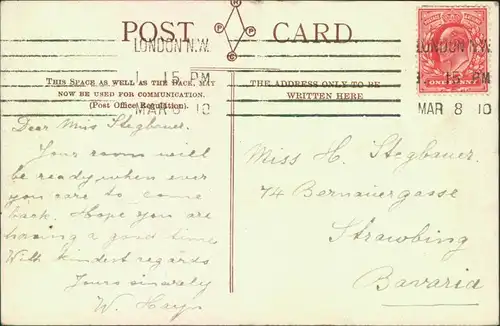 POST CARD
LONDON N.W.
1 15 PM
MAR 8 10
LONDON N.W.
1 15 PM
MAR 8 10
ONE PENNY
THIS SPACE AS WELL AS THE BACK, MAY
NOW BE USED FOR COMMUNICATION.
(Post Office Regulation).
THE ADDRESS ONLY TO BE
WRITTEN HERE
Dear Miss Stegbauer.
Your room will
be ready when ever
you care to come
back. Hope you are
having a good time
With kindest regards
Yours sincerely
W.
Miss H. Stegbauer.
74 Bernauergasse
Strawbing
Bavaria